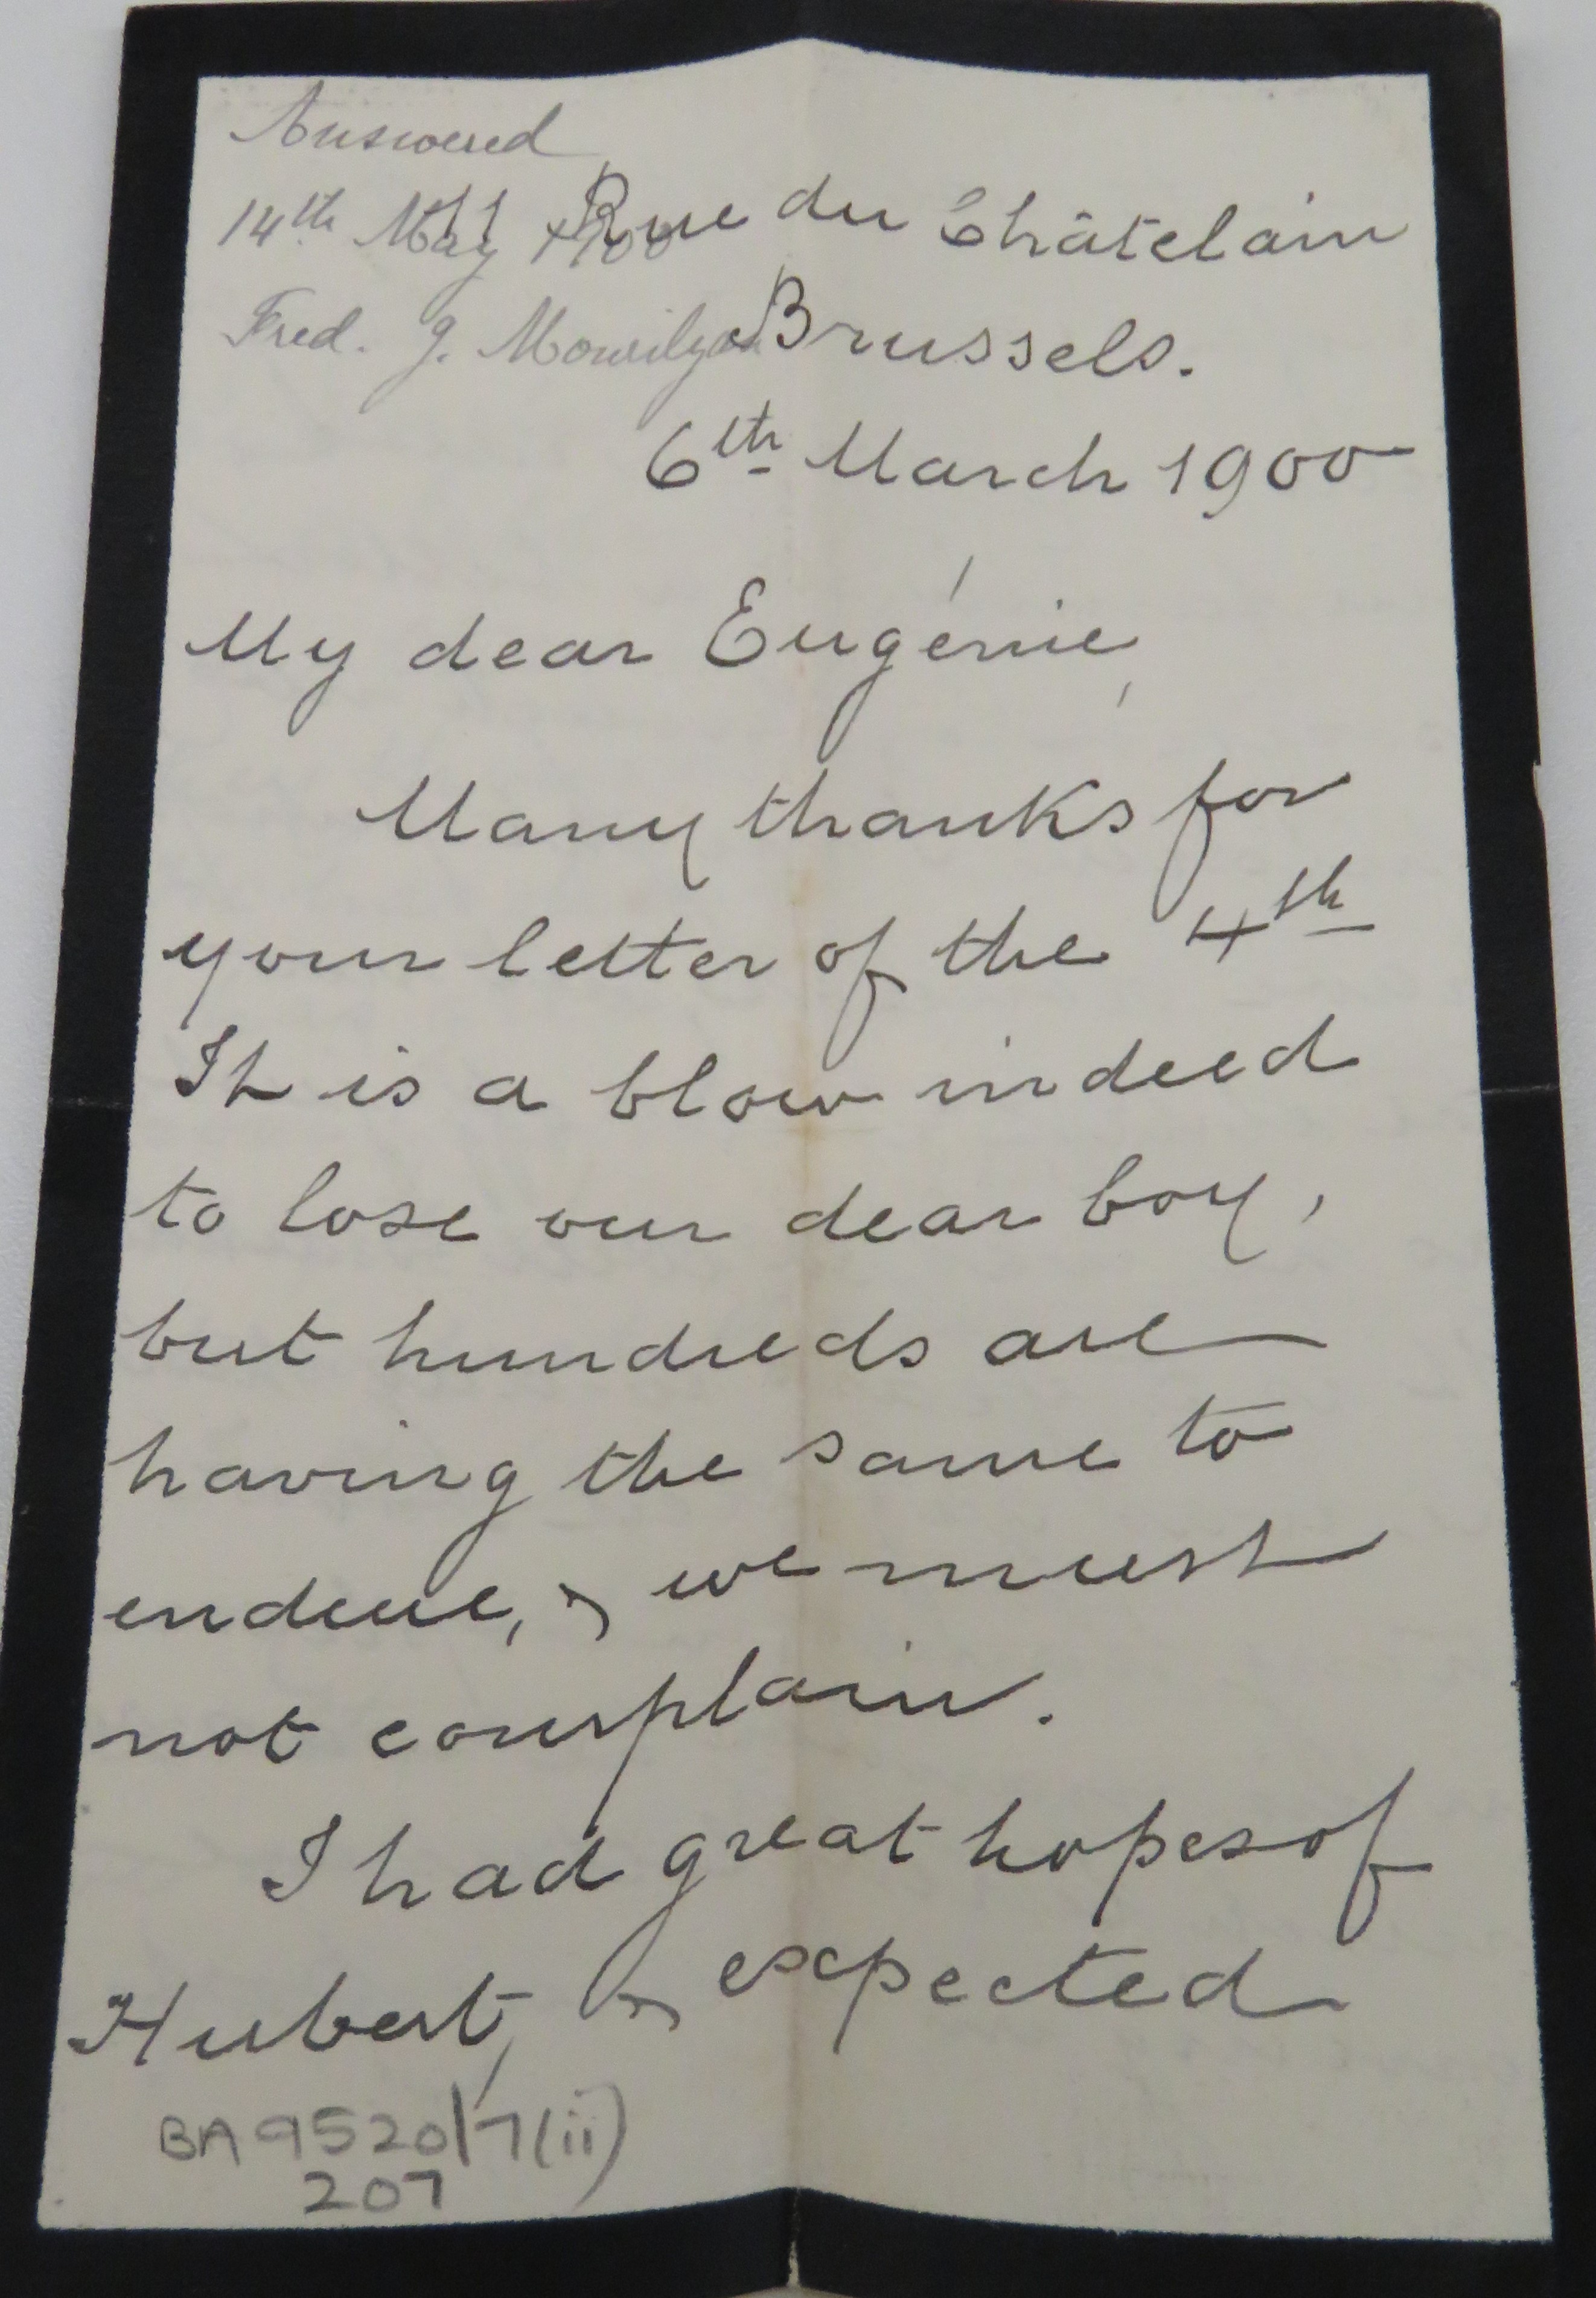 Answered
14th May 1900
Fred. J.
11 Rue du Châtelain
Brussels.
6th March 1900
My dear Eugénie,
Many thanks for
your letter of the 4th
It is a blow indeed
to lose our dear boy,
but hundreds are
having the same to
endure, & we must
not complain.
I had great hopes of
Hubert, & expected
BA 9520/7(ii)
207